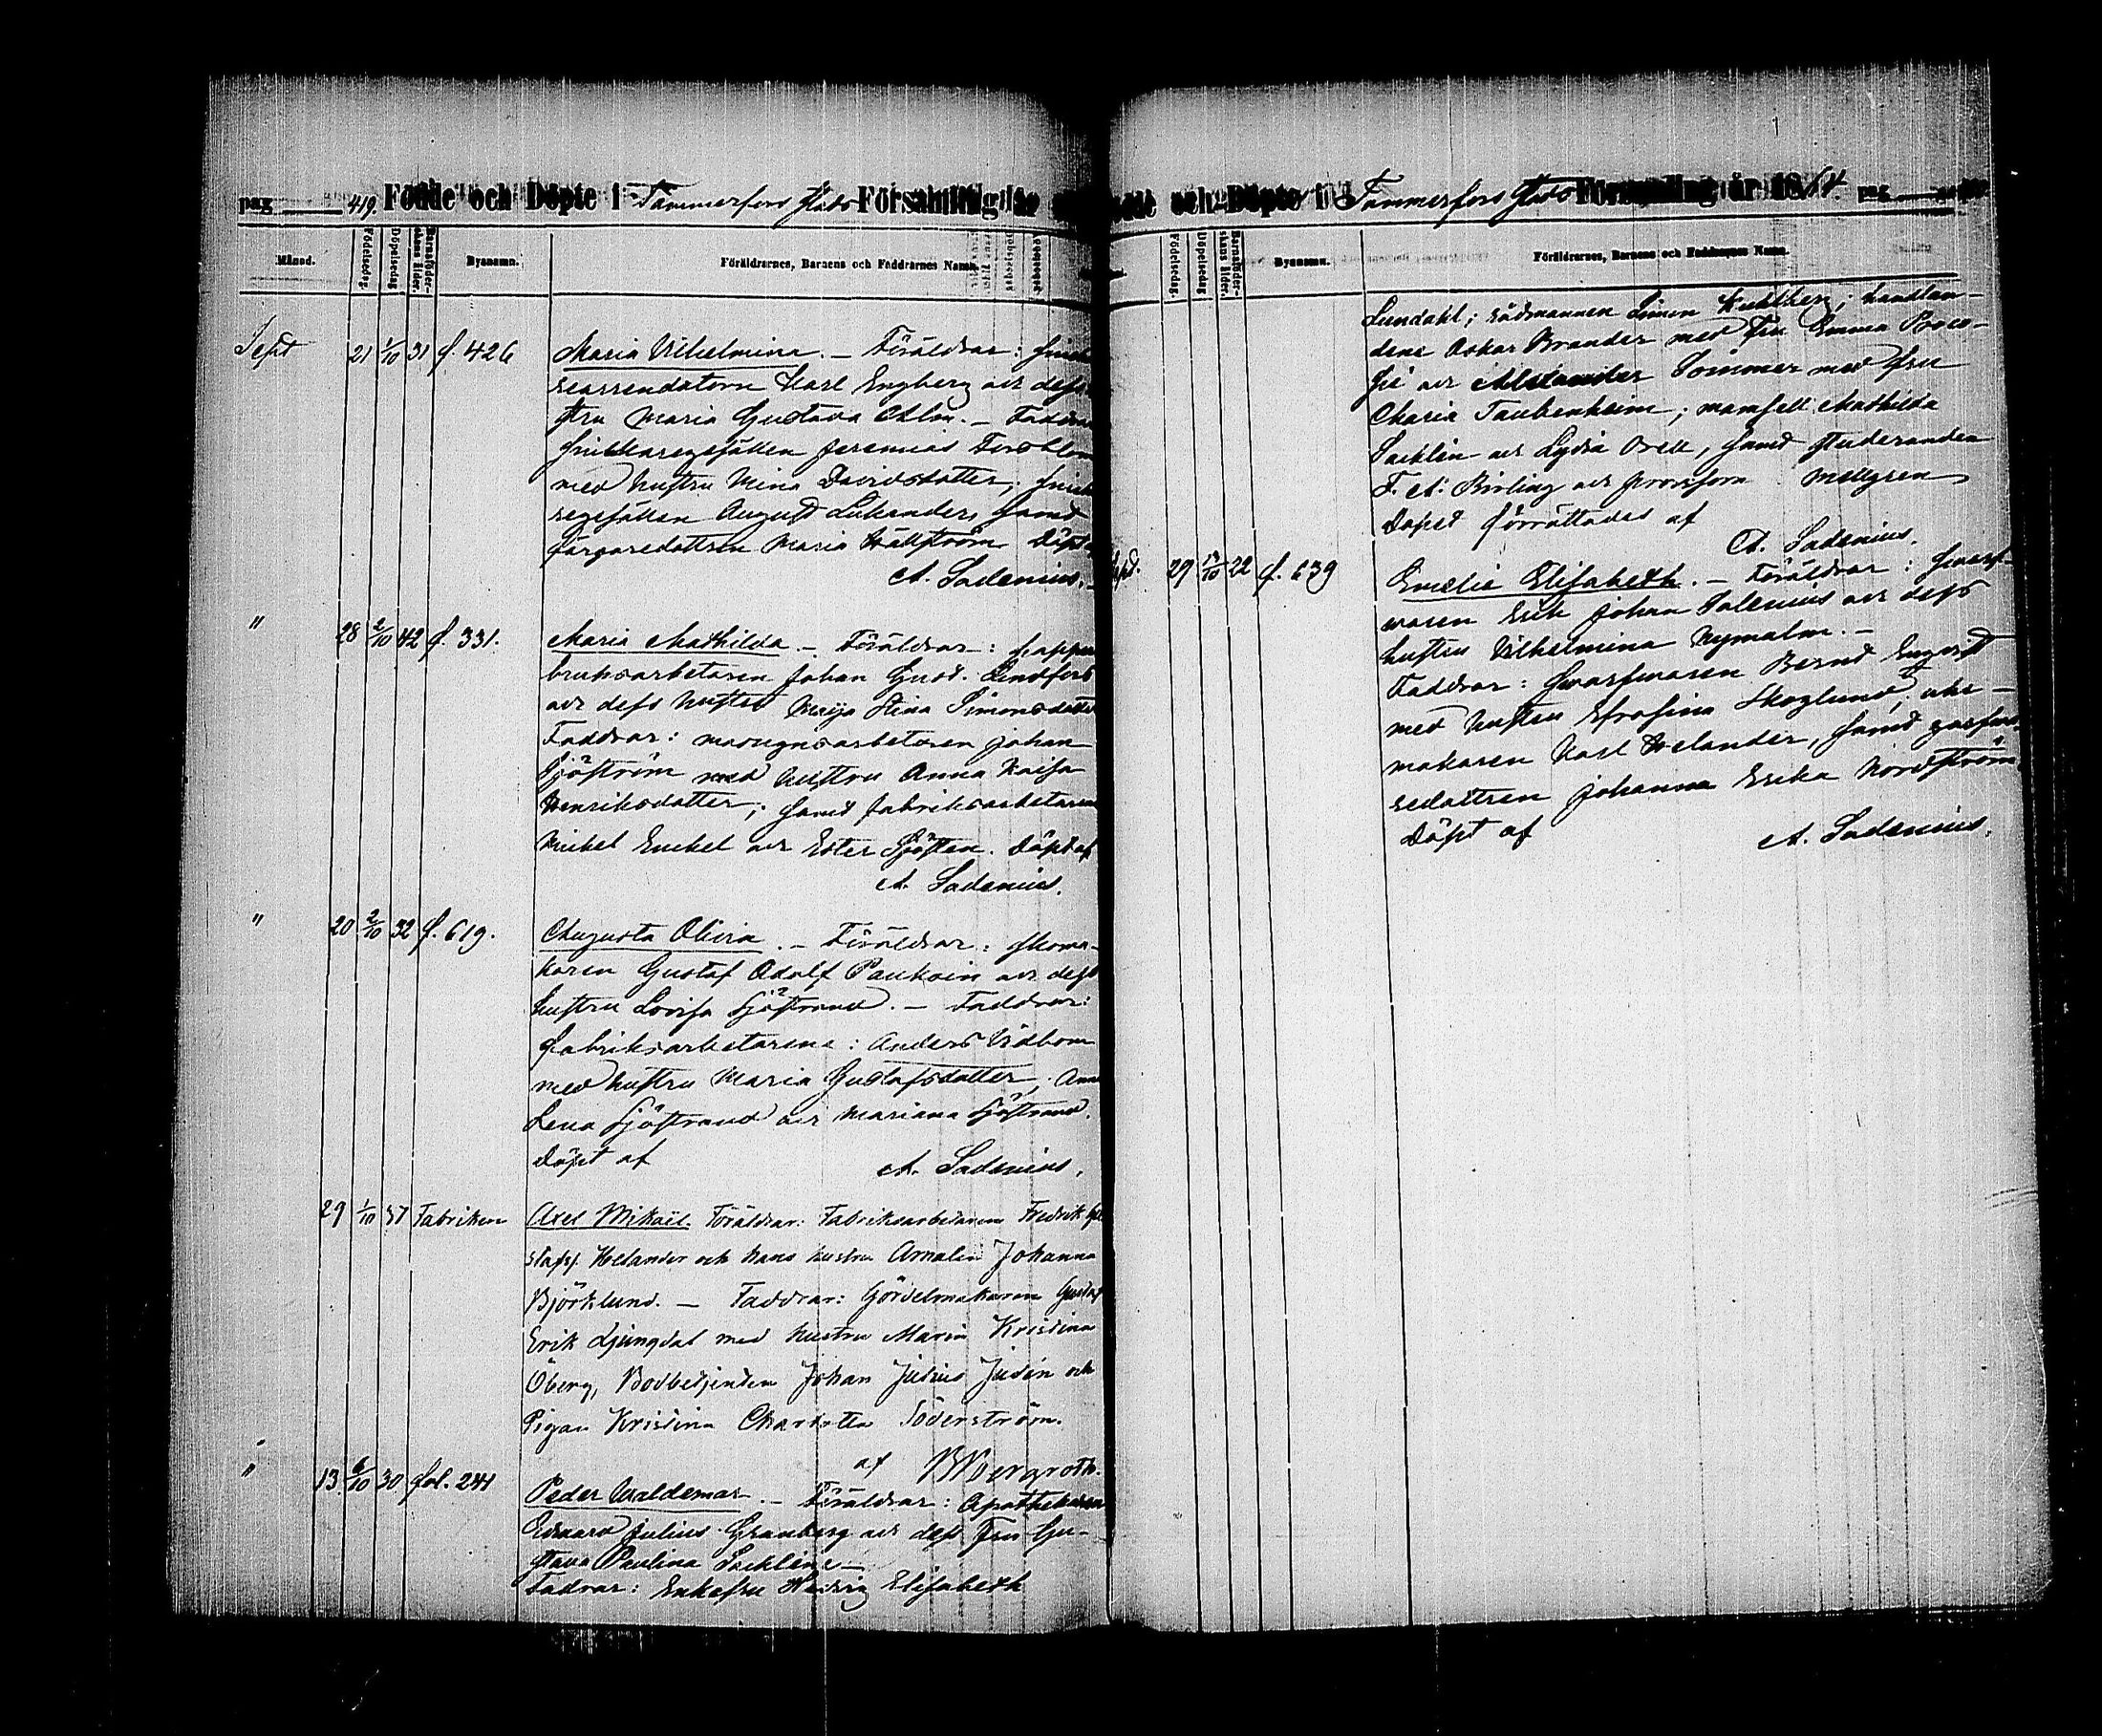 pag 419. Födde och Döpte i Tammerfors Stads Församling år
Månad. Födelsedag. Döpelsedag. Barnaföderskans ålder. Bysnamn. Föräldrarnes, Barnens och Faddrarnes Namn.
Sept 21 1/10 31 f. 426 Maria Vilhelmina. – Föräldrar:
Karl Engberg och dess
fru Maria Gustava Alm. – Faddrar
snickaregesällen Jeremias
med hustru Mina Davidsdotter;
regesällen August Lukander, samt
färgaredottren Maria Hällström. Döpt
A. Sadenius.
" 28 2/10 42 f. 331. Maria Mathilda. – Föräldrar: pappers
bruksarbetaren Johan Gust. Lindfors
och dess hustru Maija Stina Simonsdotter
Faddrar: masugnsarbetaren Johan
Sjöström med hustru Anna Kaisa
Henriksdotter; samt fabriksarbetarena
Mickel Enckel och Ester Sjösten. Döpt af
A. Sadenius.
" 20 2/10 32 f. 619. Augusta Olivia. – Föräldrar: skoma-
karen Gustaf Adolf och dess
hustru Lovisa Sjöstrand. – Faddrar:
fabriksarbetarena: Anders Vidbom
med hustru Maria Gustafsdotter; Anna
Lena Sjöstrand och Mariana Sjöstrand.
Döpt af A. Sadenius.
29 1/10 37 Fabriken Axel Mikaël. Föräldrar: Fabriksarbetaren Fredrik Gu
stafs. Helander och hans hustru Amalia Johanna
Björklund. – Faddrar: Gördelmakaren Gustaf
Erik Ljungdal med hustru Maria Kristina
Öberg, Bodbetjenten Johan Julius Judén och
Pigan Kristina Charlotta Söderström.
af Bergroth.
" 13 6/10 30 fol. 241 Peder Waldemar. – Föräldrar: Apothekaren
Edvard Julius Granberg och dess Fru Gu-
stava Paulina Sacklin. –
Faddrar: Enkefru Hedvig Elisabeth
och Döpte i Tammerfors Stads Församling år 1864. pag
Födelsedag. Döpelsedag. Barnaföderskans ålder. Bysnamn. Föräldrarnes, Barnens och Faddrarnes Namn.
Lundahl; rådmannen Simon; handlan-
dene Oskar Brander med Fru Emma Proco-
pé och Alexander Sommer med fru
Maria Taubenheim; mamsell Mathilda
Sacklén och Lydia Orell, samt studeranden
F. A. Birling och provisorn Mellgren
Dopet förrättades af
A. Sadenius.
Sept. 29 /10 22 f. 639 Emelie Elisabeth. – Föräldrar: svarf-
varen Erik Johan Salenius och dess
hustru Vilhelmina Nymalm. –
Faddrar: svarfvaren Bernd Engqvist
med hustru Efrosina Skoglund, uhr-
makaren Karl Helander, samt garfva
redottren Johanna Erika Nordström
Döpt af A. Sadenius.